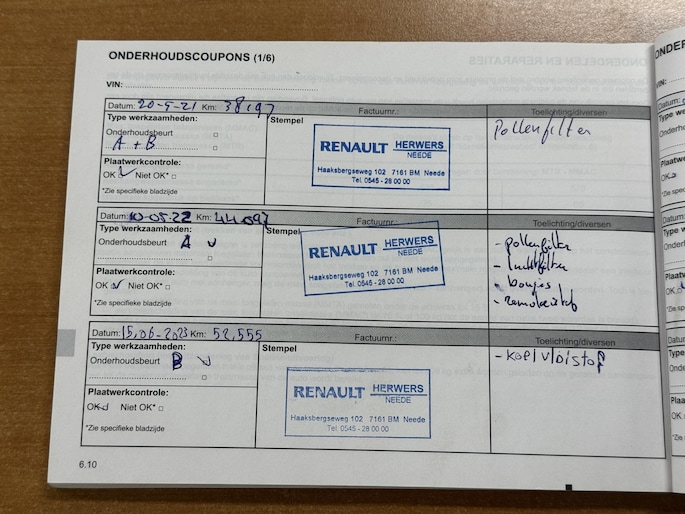 ONDERHOUDSCOUPONS (1/6)
VIN:
Datum: 20-5-21 Km: 38197 Factuurnr.: Toelichting/diversen
Type werkzaamheden: Stempel Pollenfilter
Onderhoudsbeurt
A + B
RENAULT HERWERS
NEEDE
Plaatwerkcontrole:
Haaksbergseweg 102 7161 BM Neede
OK Niet OK*
Tel. 0545 - 28 00 00
*Zie specifieke bladzijde
Datum: 10-05-22 Km: 44.097 Factuurnr.: Toelichting/diversen
Type werkzaamheden: Stempel
Onderhoudsbeurt A
RENAULT HERWERS
NEEDE
- pollenfilter
- luchtfilter
- bougies
- remvloeistof
Plaatwerkcontrole:
Haaksbergseweg 102 7161 BM Neede
OK Niet OK*
Tel. 0545 - 28 00 00
*Zie specifieke bladzijde
Datum: 15,06-2023 Km: 52,555 Factuurnr.: Toelichting/diversen
Type werkzaamheden: Stempel - koelvloistof
Onderhoudsbeurt B
RENAULT HERWERS
NEEDE
Plaatwerkcontrole:
Haaksbergseweg 102 7161 BM Neede
OK Niet OK*
Tel. 0545 - 28 00 00
*Zie specifieke bladzijde
6.10